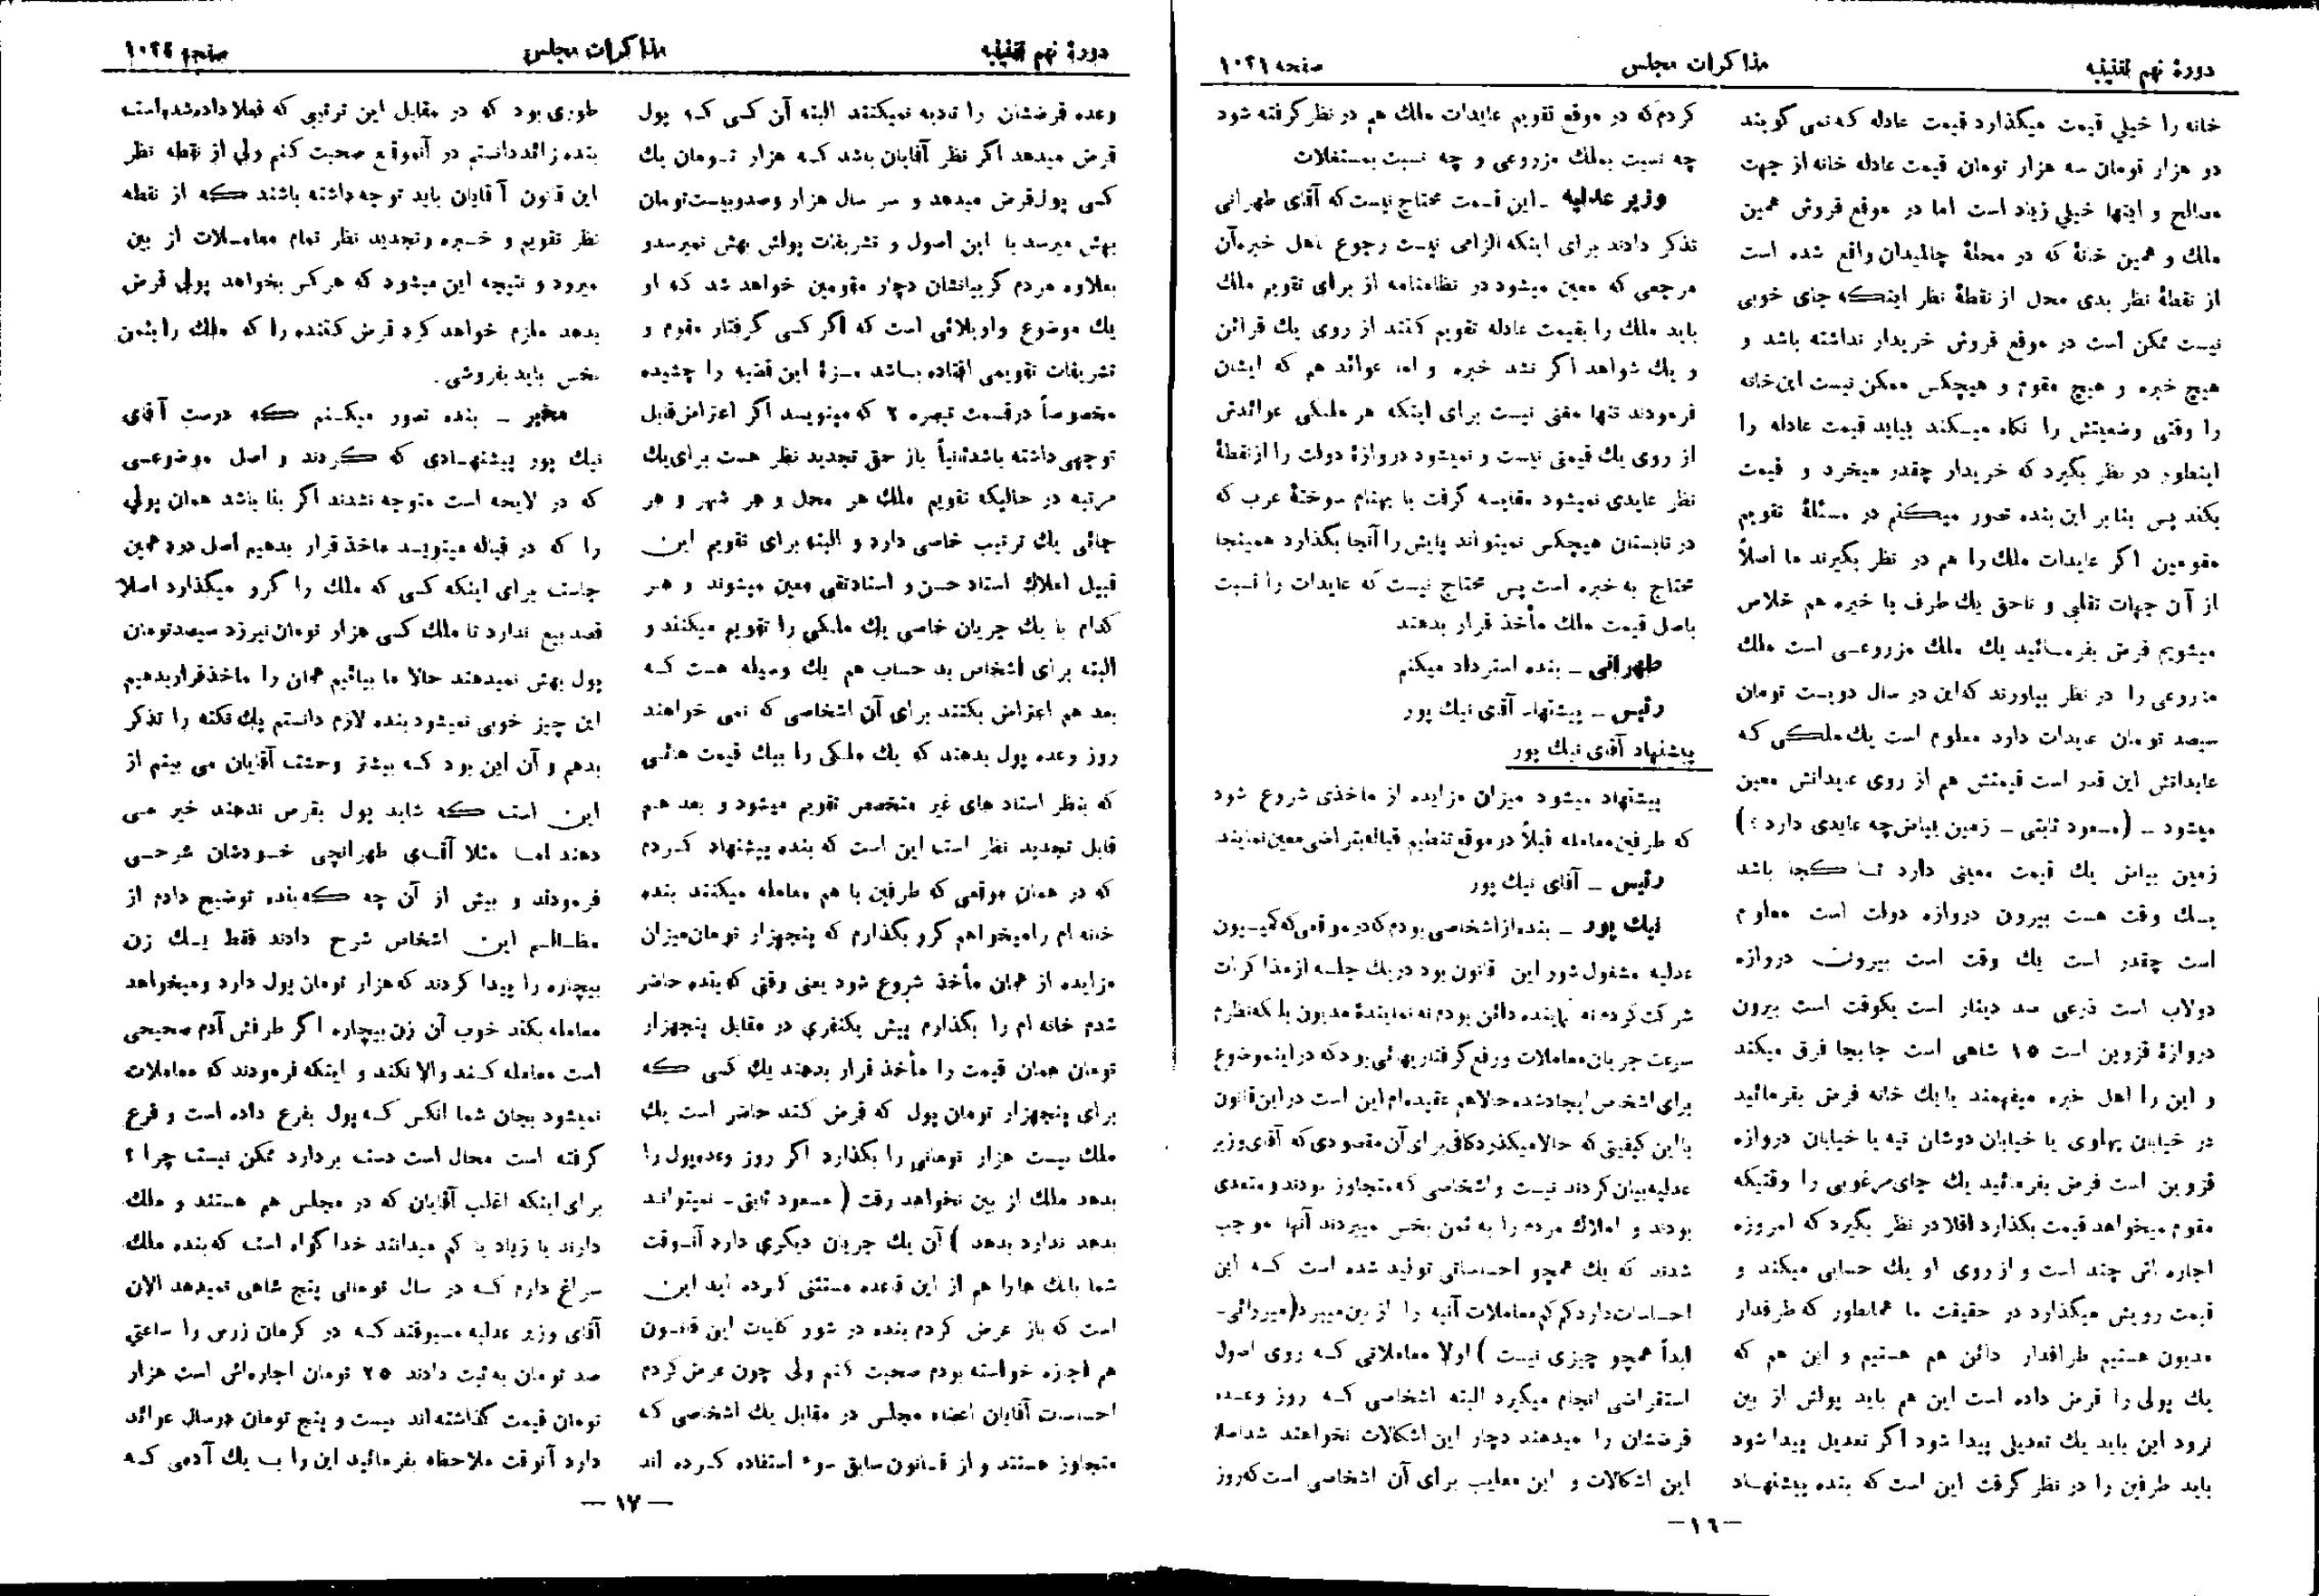 دورهٔ نهم تقنینیه
مذاکرات مجلس
صفحه ۱۰۲۱
خانه را خیلی قیمت میگذارد قیمت عادله که نمی گویند
دو هزار تومان سه هزار تومان قیمت عادله خانه از جهت
مصالح و اینها خیلی زیاد است اما در موقع فروش همین
ملك و همین خانهٔ که در محلهٔ چالمیدان واقع شده است
از نقطهٔ نظر بدی محل از نقطهٔ نظر اینکه جای خوبی
نیست ممکن است در موقع فروش خریدار نداشته باشد و
هیچ خبره و هیچ مقوم و هیچکس ممکن نیست این خانه
را وقتی وضعیتش را نگاه میکند بیاید قیمت عادله را
اینطور در نظر بگیرد که خریدار چقدر میخرد و قیمت
بکند پس بنابر این بنده تصور میکنم در مسئلهٔ تقویم
مقومین اگر عایدات ملك را هم در نظر بگیرند ما اصلاً
از آن جهات تقلبی و ناحق یك طرف با خبره هم خلاص
میشویم فرض بفرمائید یك ملك مزروعی است ملك
مزروعی را در نظر بیاورند که این در سال دویست تومان
سیصد تومان عایدات دارد معلوم است یك ملکی که
عایداتش این قدر است قیمتش هم از روی عایداتش معین
میشود ـ (مسعود ثابتی ـ زمین بیاض چه عایدی دارد ؟)
زمین بیاض یك قیمت معینی دارد تا کجا باشد
یك وقت هست بیرون دروازه دولت است معلوم
است چقدر است یك وقت است بیرون دروازه
دولاب است ذرعی صد دینار است یکوقت است بیرون
دروازهٔ قزوین است ۱۵ شاهی است جابجا فرق میکند
و این را اهل خبره میفهمند یا یك خانه فرض بفرمائید
در خیابان پهلوی یا خیابان دوشان تپه یا خیابان دروازه
قزوین است فرض بفرمائید یك جای مرغوبی را وقتیکه
مقوم میخواهد قیمت بگذارد اقلا در نظر بگیرد که امروزه
اجاره اش چند است و از روی او یك حسابی میکند و
قیمت رویش میگذارد در حقیقت ما همانطور که طرفدار
مدیون هستیم طرفدار دائن هم هستیم و این هم که
یك پولی را قرض داده است این هم باید پولش از بین
نرود این باید یك تعدیلی پیدا شود اگر تعدیل پیدا شود
باید طرفین را در نظر گرفت این است که بنده پیشنهاد
کردم که در موقع تقویم عایدات ملك هم در نظر گرفته شود
چه نسبت بملك مزروعی و چه نسبت بمستغلات
وزیر عدلیه ـ این قسمت محتاج نیست که آقای طهرانی
تذکر دادند برای اینکه الزامی نیست رجوع باهل خبره آن
مرجعی که معین میشود در نظامنامه از برای تقویم ملك
باید ملك را بقیمت عادله تقویم کنند از روی یك قرائن
و یك شواهد اگر نشد خبره و اما عوائد هم که ایشان
فرمودند تنها مغنی نیست برای اینکه هر ملکی عوائدش
از روی یك قیمتی نیست و نمیشود دروازهٔ دولت را از نقطهٔ
نظر عایدی نمیشود مقایسه گرفت با بهنام سوختهٔ عرب که
در تابستان هیچکس نمیتواند پایش را آنجا بگذارد همینجا
محتاج به خبره است پس محتاج نیست که عایدات را نسبت
باصل قیمت ملك مأخذ قرار بدهند
طهرانی ـ بنده استرداد میکنم
رئیس ـ پیشنهاد آقای نیك پور
پیشنهاد آقای نیك پور
پیشنهاد میشود میزان مزایده از ماخذی شروع شود
که طرفین معامله قبلاً در موقع تنظیم قباله بتراضی معین نمایند
رئیس ـ آقای نیك پور
نیك پور ـ بنده از اشخاصی بودم که در موقعی که کمیسیون
عدلیه مشغول شور این قانون بود در یك جلسه از مذاکرات
شرکت کردم نه نماینده دائن بودم نه نمایندهٔ مدیون بلکه نظرم
سرعت جریان معاملات و رفع گرفتاریهائی بود که در اینموضوع
برای اشخاص ایجاد شده حالا هم عقیده ام این است در این قانون
با این کیفیتی که حالا میگذرد کافی برای آن مقصودی که آقای وزیر
عدلیه بیان کردند نیست و اشخاصی که متجاوز بودند و متعدی
بودند و املاك مردم را به ثمن بخس میبردند آنها موجب
شدند که یك همچو احساساتی تولید شده است که این
احساسات دارد کم کم معاملات آتیه را از بین میبرد (میرزائی ـ
ابداً همچو چیزی نیست) اولا معاملاتی که روی اصول
استقراضی انجام میگیرد البته اشخاصی که روز وعده
قرضشان را میدهند دچار این اشکالات نخواهند شد اصلا
این اشکالات و این معایب برای آن اشخاصی است که روز
ـ ۱٦ ـ
دورهٔ نهم تقنینیه
مذاکرات مجلس
وعده قرضشان را تادیه نمیکنند البته آن کسی که پول
قرض میدهد اگر نظر آقایان باشد که هزار تومان یك
کسی پول قرض میدهد و سر سال هزار و صد و بیست تومان
بهش میرسد با این اصول و تشریفات پولش بهش نمیرسد و
بعلاوه مردم گریبانشان دچار مقومین خواهد شد که او
یك موضوع و او بلائی است که اگر کسی گرفتار مقوم و
تشریفات تقویمی افتاده باشد مزهٔ این قضیه را چشیده
مخصوصاً در قسمت تبصره ۲ که مینویسد اگر اعتراض قابل
توجهی داشته باشد ثانیاً باز حق تجدید نظر هست برای یك
مرتبه در حالیکه تقویم ملك هر محل و هر شهر و هر
جائی یك ترتیب خاصی دارد و البته برای تقویم این
قبیل املاك استاد حسن و استاد تقی معین میشوند و هر
کدام با یك جریان خاصی یك ملکی را تقویم میکنند و
البته برای اشخاص بد حساب هم یك وسیله هست که
بعد هم اعتراض بکنند برای آن اشخاصی که نمی خواهند
روز وعده پول بدهند که یك ملکی را بیك قیمت هائی
که بنظر استاد های غیر متخصص تقویم میشود و بعد هم
قابل تجدید نظر است این است که بنده پیشنهاد کردم
که در همان موقعی که طرفین با هم معامله میکنند بنده
خانه ام را میخواهم گرو بگذارم که پنجهزار تومان میزان
مزایده از همان مأخذ شروع شود یعنی وقتی که بنده حاضر
شدم خانه ام را بگذارم پیش یکنفری در مقابل پنجهزار
تومان همان قیمت را مأخذ قرار بدهند یك کسی که
برای پنجهزار تومان پول که قرض کند حاضر است یك
ملك بیست هزار تومانی را بگذارد اگر روز وعده پول را
بدهد ملك از بین نخواهد رفت (مسعود ثابتی ـ نمیتواند
بدهد ندارد بدهد) آن یك جریان دیگری دارد آنوقت
شما بانك ها را هم از این قاعده مستثنی کرده اید این
است که باز عرض کردم بنده در شور کلیات این قانون
هم اجازه خواسته بودم صحبت کنم ولی چون عرض کردم
احساسات آقایان اعضاء مجلس در مقابل یك اشخاصی که
متجاوز هستند و از قانون سابق سوء استفاده کرده اند
طوری بود که در مقابل این ترتیبی که فعلا داده شده است
بنده زائد دانستم در آنموقع صحبت کنم ولی از نقطه نظر
این قانون آقایان باید توجه داشته باشند که از نقطه
نظر تقویم و خبره و تجدید نظر تمام معاملات از بین
میرود و نتیجه این میشود که هر کس بخواهد پولی قرض
بدهد ملزم خواهد کرد قرض کننده را که ملك را بثمن
بخس باید بفروشی.
مخبر ـ بنده تصور میکنم که درست آقای
نیك پور پیشنهادی که کردند و اصل موضوعی
که در لایحه است متوجه نشدند اگر بنا باشد همان پولی
را که در قباله مینویسد ماخذ قرار بدهیم اصل درد همین
جاست برای اینکه کسی که ملك را گرو میگذارد اصلا
قصد بیع ندارد تا ملك کسی هزار تومان نیرزد سیصد تومان
پول بهش نمیدهند حالا ما بیائیم همان را ماخذ قرار بدهیم
این چیز خوبی نمیشود بنده لازم دانستم یك نکته را تذکر
بدهم و آن این بود که بیشتر وحشت آقایان می بینم از
این است که شاید پول بقرض ندهند خیر می
دهند اما مثلا آقای طهرانچی خودشان شرحی
فرمودند و بیش از آن چه که بنده توضیح دادم از
مظالم این اشخاص شرح دادند فقط یك زن
بیچاره را پیدا کردند که هزار تومان پول دارد و میخواهد
معامله بکند خوب آن زن بیچاره اگر طرفش آدم صحیحی
است معامله کند والا نکند و اینکه فرمودند که معاملات
نمیشود بجان شما آنکس که پول بفرع داده است و فرع
گرفته است محال است دست بردارد ممکن نیست چرا ؟
برای اینکه اغلب آقایان که در مجلس هم هستند و ملك
دارند یا زیاد یا کم میدانند خدا گواه است که بنده ملك
سراغ دارم که در سال تومانی پنج شاهی نمیدهد الان
آقای وزیر عدلیه مسبوقند که در کرمان زرس را ساعتی
صد تومان به ثبت دادند ۲۵ تومان اجاره اش است هزار
تومان قیمت گذاشته اند بیست و پنج تومان در سال عوائد
دارد آنوقت ملاحظه بفرمائید این را به یك آدمی که
ـ ۱۷ ـ